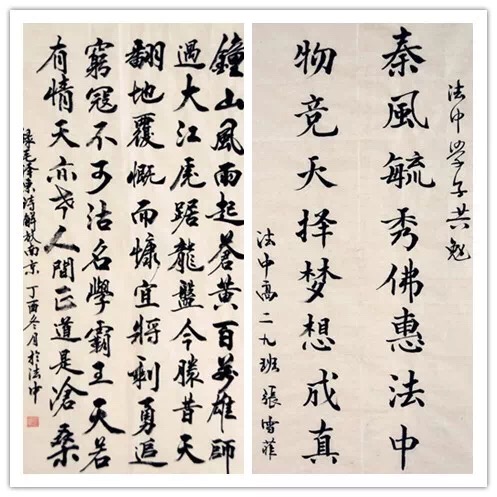 鐘山風雨起蒼黃百萬雄師
過大江虎踞龍盤今勝昔天
翻地覆慨而慷宜將剩勇追
窮寇不可沽名學霸王天若
有情天亦老人間正道是滄桑
錄毛澤東詩解放南京 丁酉冬月於法中
法中學子共勉
秦風毓秀佛惠法中
物竞天择梦想成真
法中高二九班 張雪菲